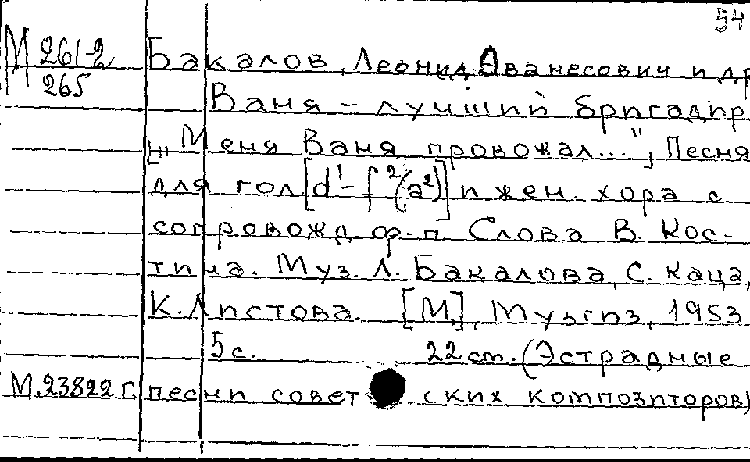 54
М 261-2
265
Бакалов, Леонид Аванесович и др
Ваня – лучший бригадир
[„Меня Ваня провожал...", Песня
для гол [d¹–f²(a²)] и жен. хора с
сопровожд. ф-п. Слова В. Кос-
тина. Муз. Л. Бакалова, С. Каца,
К. Листова. [М], Музгиз, 1953.
5 с. 22 cm. (Эстрадные
М.23822 г. песни советских композиторов)